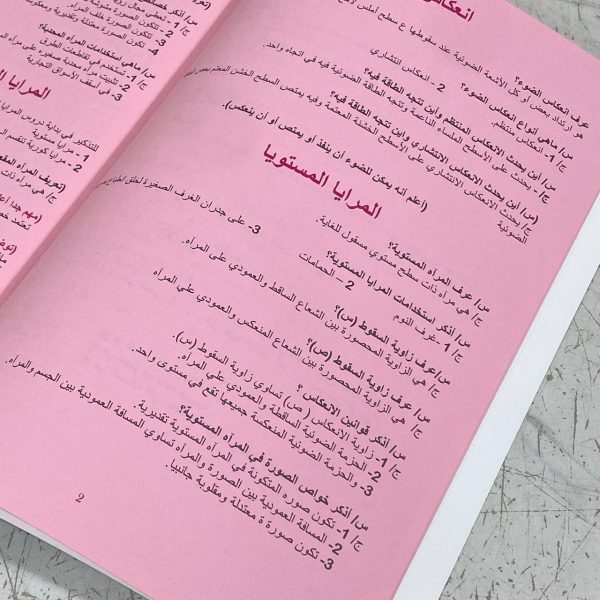 انعكاس
عرف انعكاس الضوء؟
هو ارتداد بعض أو كل الأشعة الضوئية عند سقوطها ع سطح أملس
س/ ماهي أنواع انعكاس الضوء؟
ج/ 1- انعكاس منتظم. 2- انعكاس انتشاري
س/ أين يحدث الانعكاس المنتظم وأين تتجه الطاقة فيه؟
ج/ - يحدث على الأسطح الملساء الناعمة وتتجه الطاقة الضوئية فيه في اتجاه واحد.
(س/ أين يحدث الانعكاس الانتشاري وأين تتجه الطاقة الضوئية فيه؟
ج/ يحدث الانعكاس الانتشاري على الأسطح الخشنة المعتمة وفيه يمتص السطح الخشن المعتم
الضوئية
(أعلم أنه يمكن للضوء أن ينفذ أو يمتص أو أن ينعكس).
المرايا المستويا
س/ عرف المرآه المستوية؟
ج/ هي مرآه ذات سطح مستوي مسقول للغاية.
س/ أذكر استخدامات المرايا المستوية؟
ج/ 1- غرف النوم 2 – الحمامات 3- على جدران الغرف الصغيرة لخلق
س/ عرف زاوية السقوط (س)؟
ج/ هي الزاوية المحصورة بين الشعاع الساقط والعمودي على المرآه
س/ عرف زاوية السقوط (ص)؟
ج/ هي الزاوية المحصورة بين الشعاع المنعكس والعمودي على المرآه
س/ أذكر قوانين الانعكاس ؟
ج/ 1- زاوية الانعكاس ( ص) تساوي زاوية السقوط (س).
2- الحزمة الضوئية الساقطة والعمودي على المرآه.
3- والحزمة الضوئية المنعكسة جميعها تقع في مستوى واحد.
س/ أذكر خواص الصورة في المرآه المستوية؟
ج/ 1- تكون صوره المتكونة في المرآه المستوية تقديرية.
2- المسافة العمودية بين الصورة والمرآه تساوي المسافة العمودية بين الجسم والمرآه.
3- تكون صورة ة معتدلة ومقلوبة جانبيا.
2
2- تتكون الصورة
3- تكون الصورة خلف المرآه.
4- تكون الصورة معتدلة وتقديرية و
س/ ماهي استخدامات المرآه المحدبة؟
ج/ 1- تستخدم في تقاطعات الطرق
2- تثبيت مرآه محدبة صغير على
3- في أسقف الأسواق التجارية
المرايا
للتذكير في بداية دروس المرايا
1 - مرايا مستوية
2 - مرايا كروية تقسم
(تعريف المرآه
ج/ هي مرآه ذات
(مهم جدا